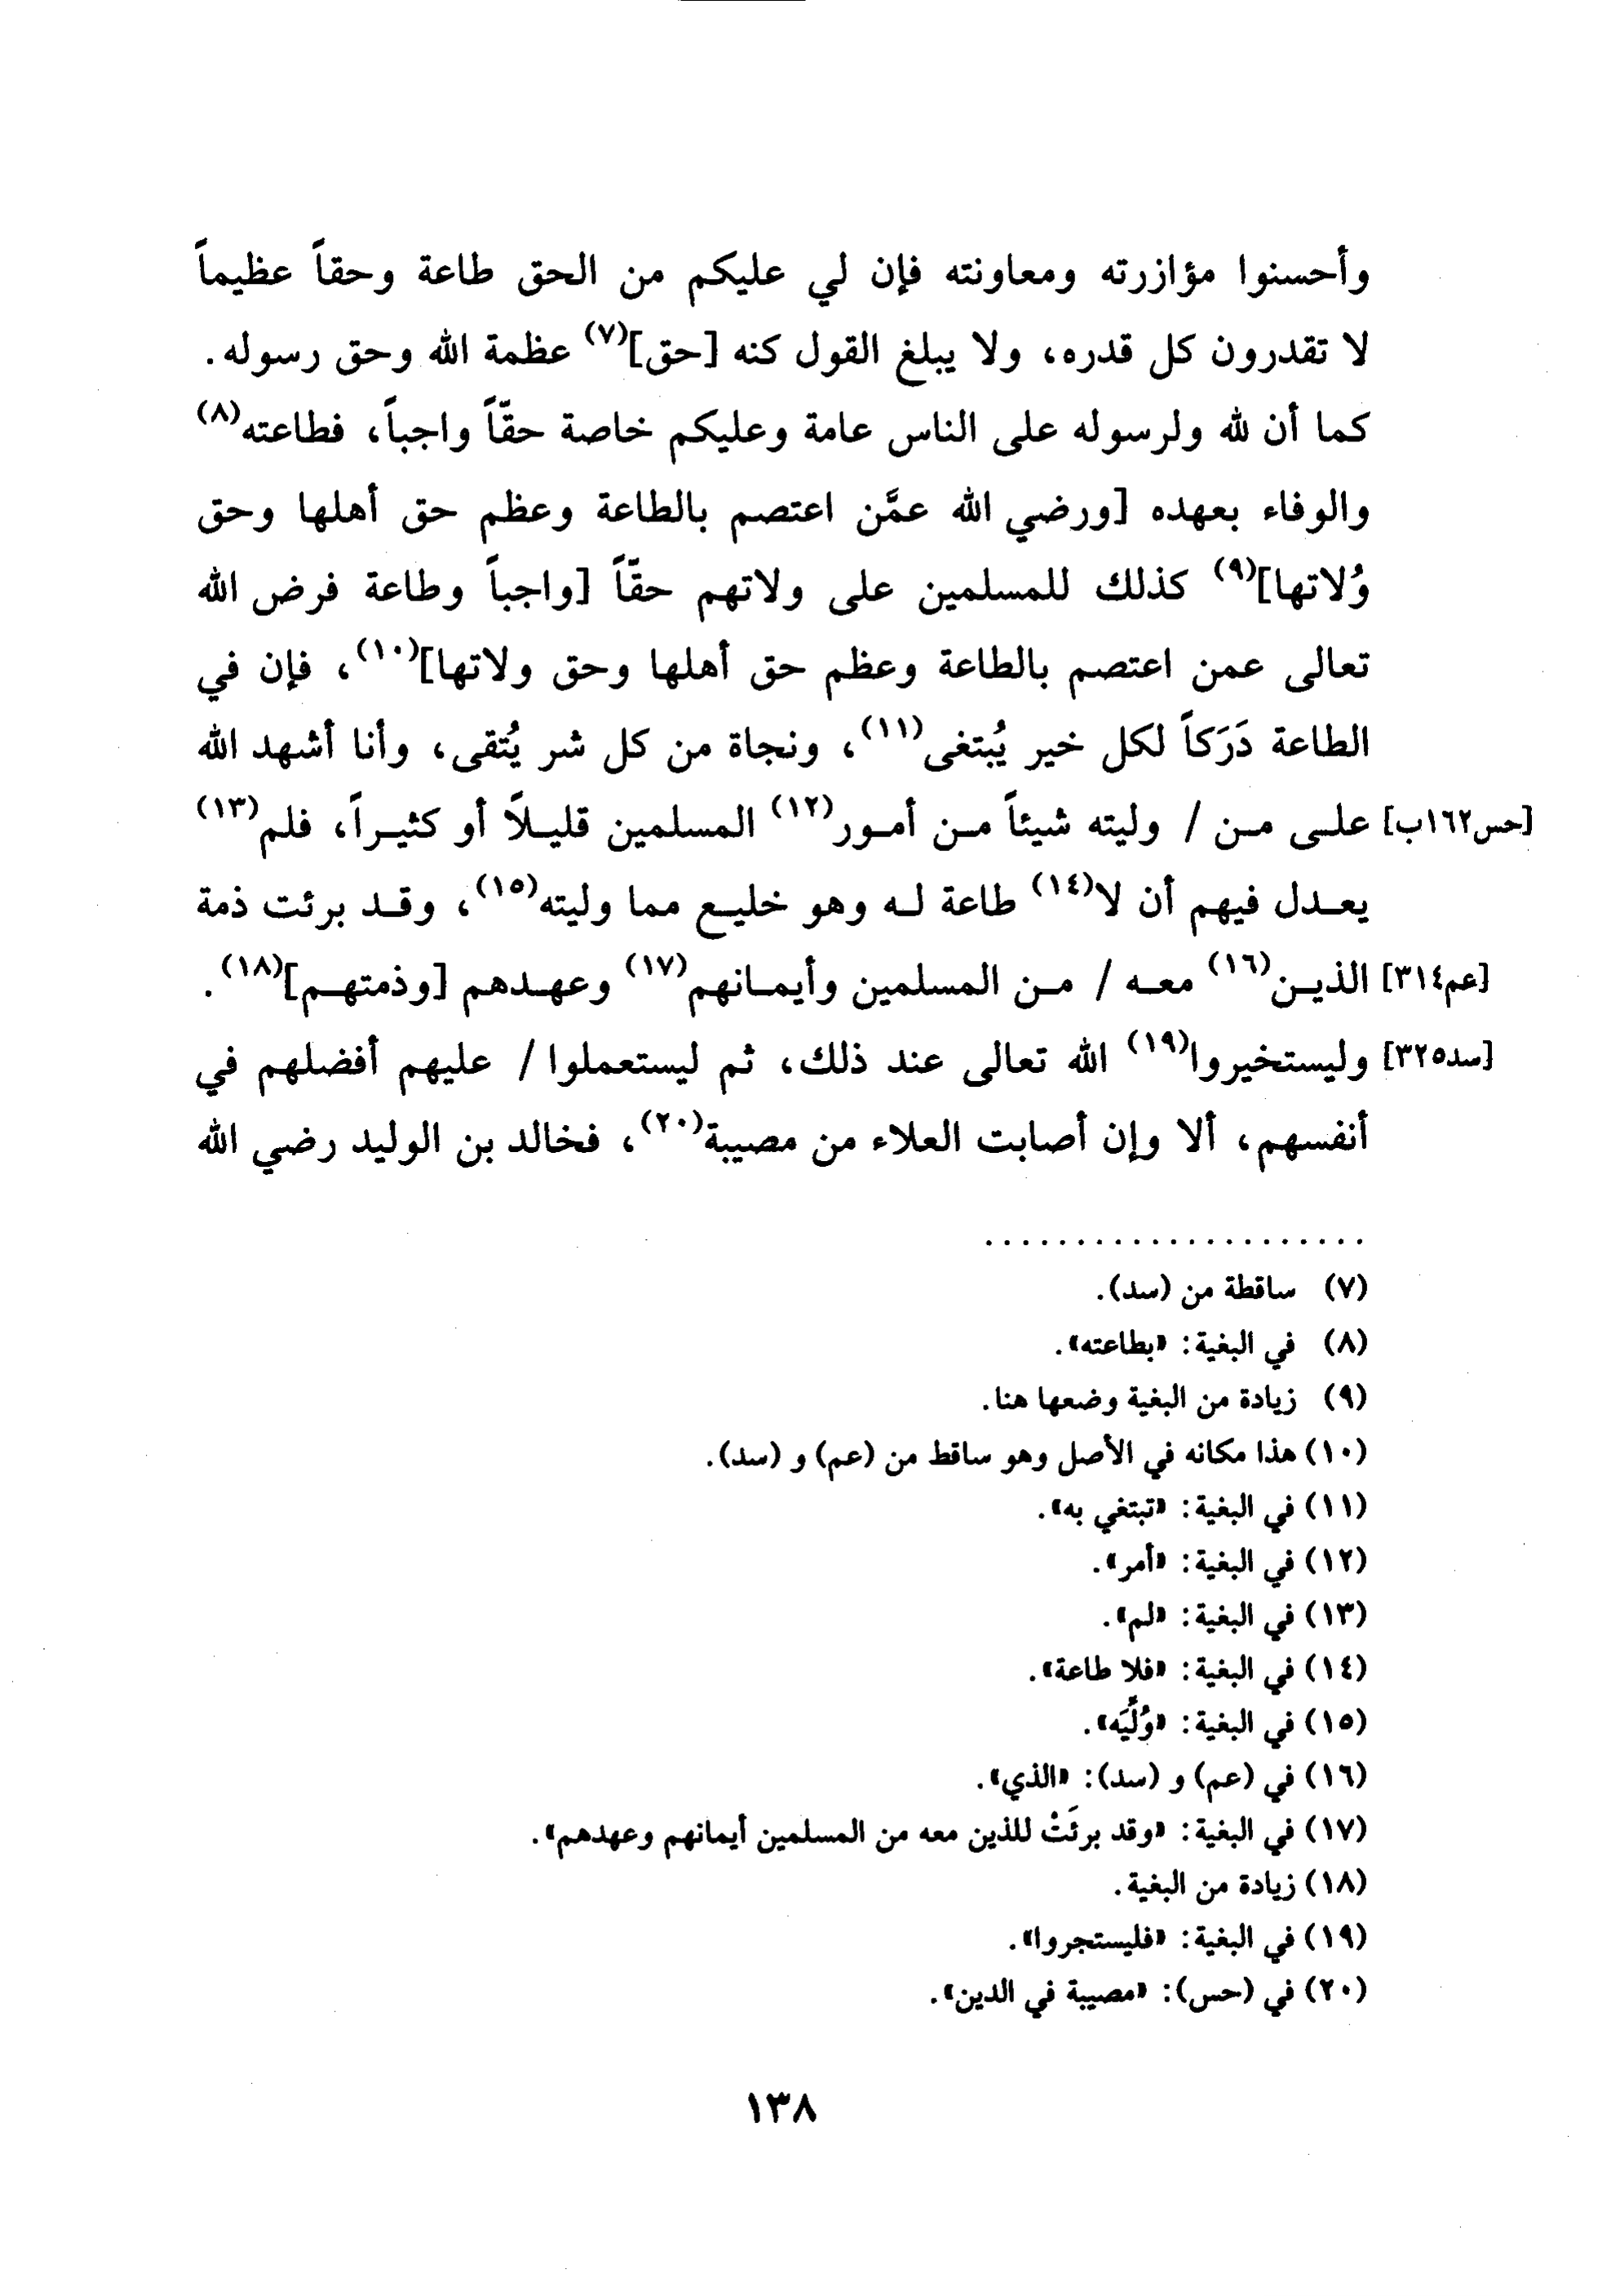 وأحسنوا مؤازرته ومعاونته فإن لي عليكم من الحق طاعة وحقاً عظيماً
لا تقدرون كل قدره، ولا يبلغ القول كنه [حق](٧) عظمة الله وحق رسوله.
كما أن لله ولرسوله على الناس عامة وعليكم خاصة حقّاً واجباً، فطاعته(٨)
والوفاء بعهده [ورضي الله عمَّن اعتصم بالطاعة وعظم حق أهلها وحق
وُلاتها](٩) كذلك للمسلمين على ولاتهم حقّاً [واجباً وطاعة فرض الله
تعالى عمن اعتصم بالطاعة وعظم حق أهلها وحق ولاتها](١٠)، فإن في
الطاعة دَرَكاً لكل خير يُبتغى(١١)، ونجاة من كل شر يُتقى، وأنا أشهد الله
[حس١٦٢ب] علـى مـن / وليته شيئاً مـن أمـور(١٢) المسلمين قليـلاً أو كثيـراً، فلم(١٣)
يعـدل فيهم أن لا(١٤) طاعة لـه وهو خليـع مما وليته(١٥)، وقـد برئت ذمة
[عم٣١٤] الذيـن(١٦) معـه / مـن المسلمين وأيمـانهم(١٧) وعهـدهم [وذمتهـم](١٨).
[سد٣٢٥] وليستخيروا(١٩) الله تعالى عند ذلك، ثم ليستعملوا / عليهم أفضلهم في
أنفسهم، ألا وإن أصابت العلاء من مصيبة(٢٠)، فخالد بن الوليد رضي الله
. . . . . . . . . . . . . . . . . . . . .
(٧) ساقطة من (سد).
(٨) في البغية: «بطاعته».
(٩) زيادة من البغية وضعها هنا.
(١٠) هذا مكانه في الأصل وهو ساقط من (عم) و (سد).
(١١) في البغية: «تبتغي به».
(١٢) في البغية: «أمر».
(١٣) في البغية: «لم».
(١٤) في البغية: «فلا طاعة».
(١٥) في البغية: «وُلِّيَه».
(١٦) في (عم) و (سد): «الذي».
(١٧) في البغية: «وقد برئَتْ للذين معه من المسلمين أيمانهم وعهدهم».
(١٨) زيادة من البغية.
(١٩) في البغية: «فليستجروا».
(٢٠) في (حس): «مصيبة في الدين».
١٣٨